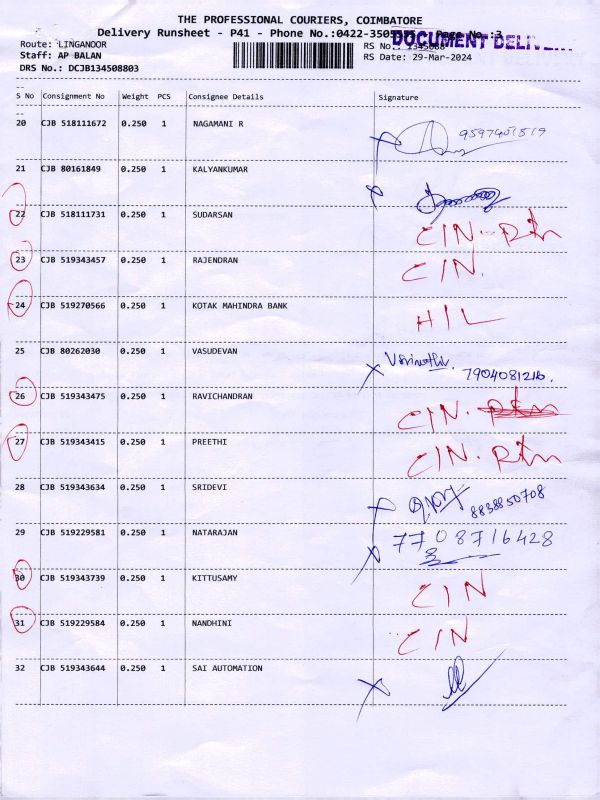 THE PROFESSIONAL COURIERS, COIMBATORE
Delivery Runsheet - P41 - Phone No.:0422-3505555 Page No.:3
DOCUMENT DELIVE
Route: LINGANOOR
RS No.: 1345088
Staff: AP BALAN
RS Date: 29-Mar-2024
DRS No.: DCJB134508803
S No Consignment No Weight PCS Consignee Details Signature
20 CJB 518111672 0.250 1 NAGAMANI R 9597401519
21 CJB 80161849 0.250 1 KALYANKUMAR
22 CJB 518111731 0.250 1 SUDARSAN CIN. Rtn
23 CJB 519343457 0.250 1 RAJENDRAN CIN.
24 CJB 519270566 0.250 1 KOTAK MAHINDRA BANK HIL
25 CJB 80262030 0.250 1 VASUDEVAN 7904081216.
26 CJB 519343475 0.250 1 RAVICHANDRAN CIN. Rtn
27 CJB 519343415 0.250 1 PREETHI CIN. Rtn
28 CJB 519343634 0.250 1 SRIDEVI 8838850708
29 CJB 519229581 0.250 1 NATARAJAN 7708716428
30 CJB 519343739 0.250 1 KITTUSAMY CIN
31 CJB 519229584 0.250 1 NANDHINI CIN
32 CJB 519343644 0.250 1 SAI AUTOMATION